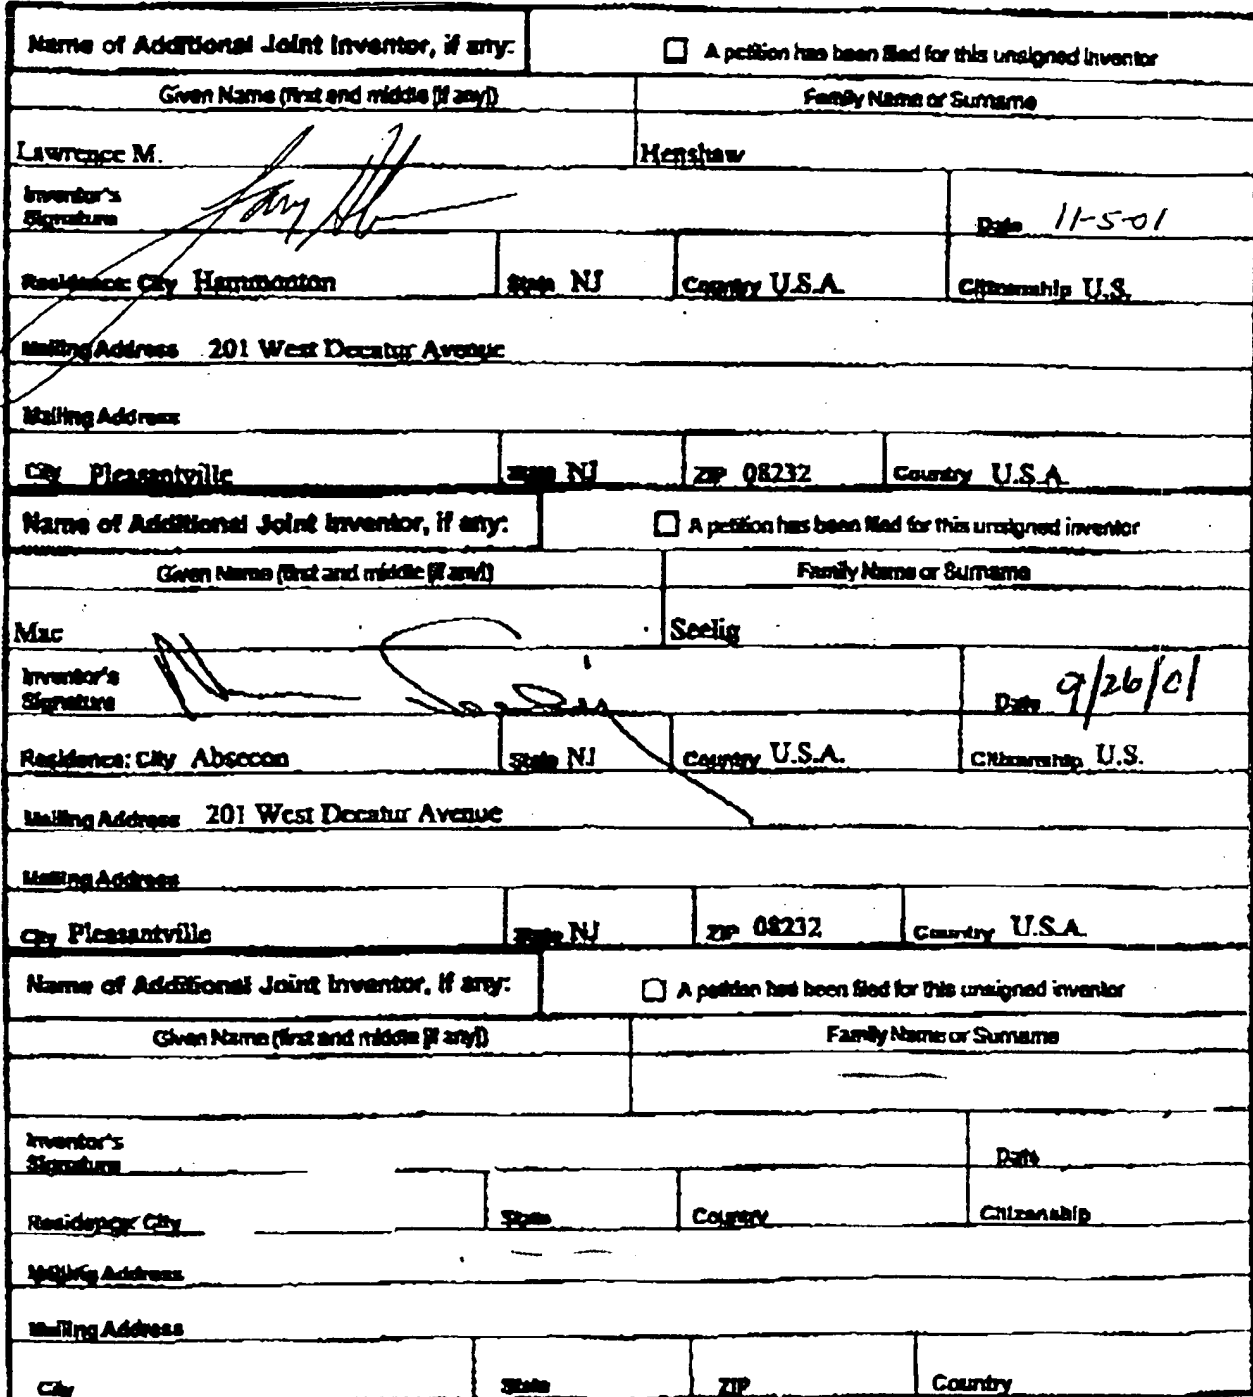 Name of Additional Joint Inventor, if any: ☐ A petition has been filed for this unsigned inventor
Given Name (first and middle [if any]) Family Name or Surname
Lawrence M. Henshaw
Inventor's
Signature Date 11-5-01
Residence: City Hammonton State NJ Country U.S.A. Citizenship U.S.
Mailing Address 201 West Decatur Avenue
Mailing Address
City Pleasantville State NJ ZIP 08232 Country U.S.A.
Name of Additional Joint Inventor, if any: ☐ A petition has been filed for this unsigned inventor
Given Name (first and middle [if any]) Family Name or Surname
Mac Seelig
Inventor's
Signature Date 9/26/01
Residence: City Absecon State NJ Country U.S.A. Citizenship U.S.
Mailing Address 201 West Decatur Avenue
Mailing Address
City Pleasantville State NJ ZIP 08232 Country U.S.A.
Name of Additional Joint Inventor, if any: ☐ A petition has been filed for this unsigned inventor
Given Name (first and middle [if any]) Family Name or Surname
Inventor's
Signature Date
Residence: City State Country Citizenship
Mailing Address
Mailing Address
City State ZIP Country